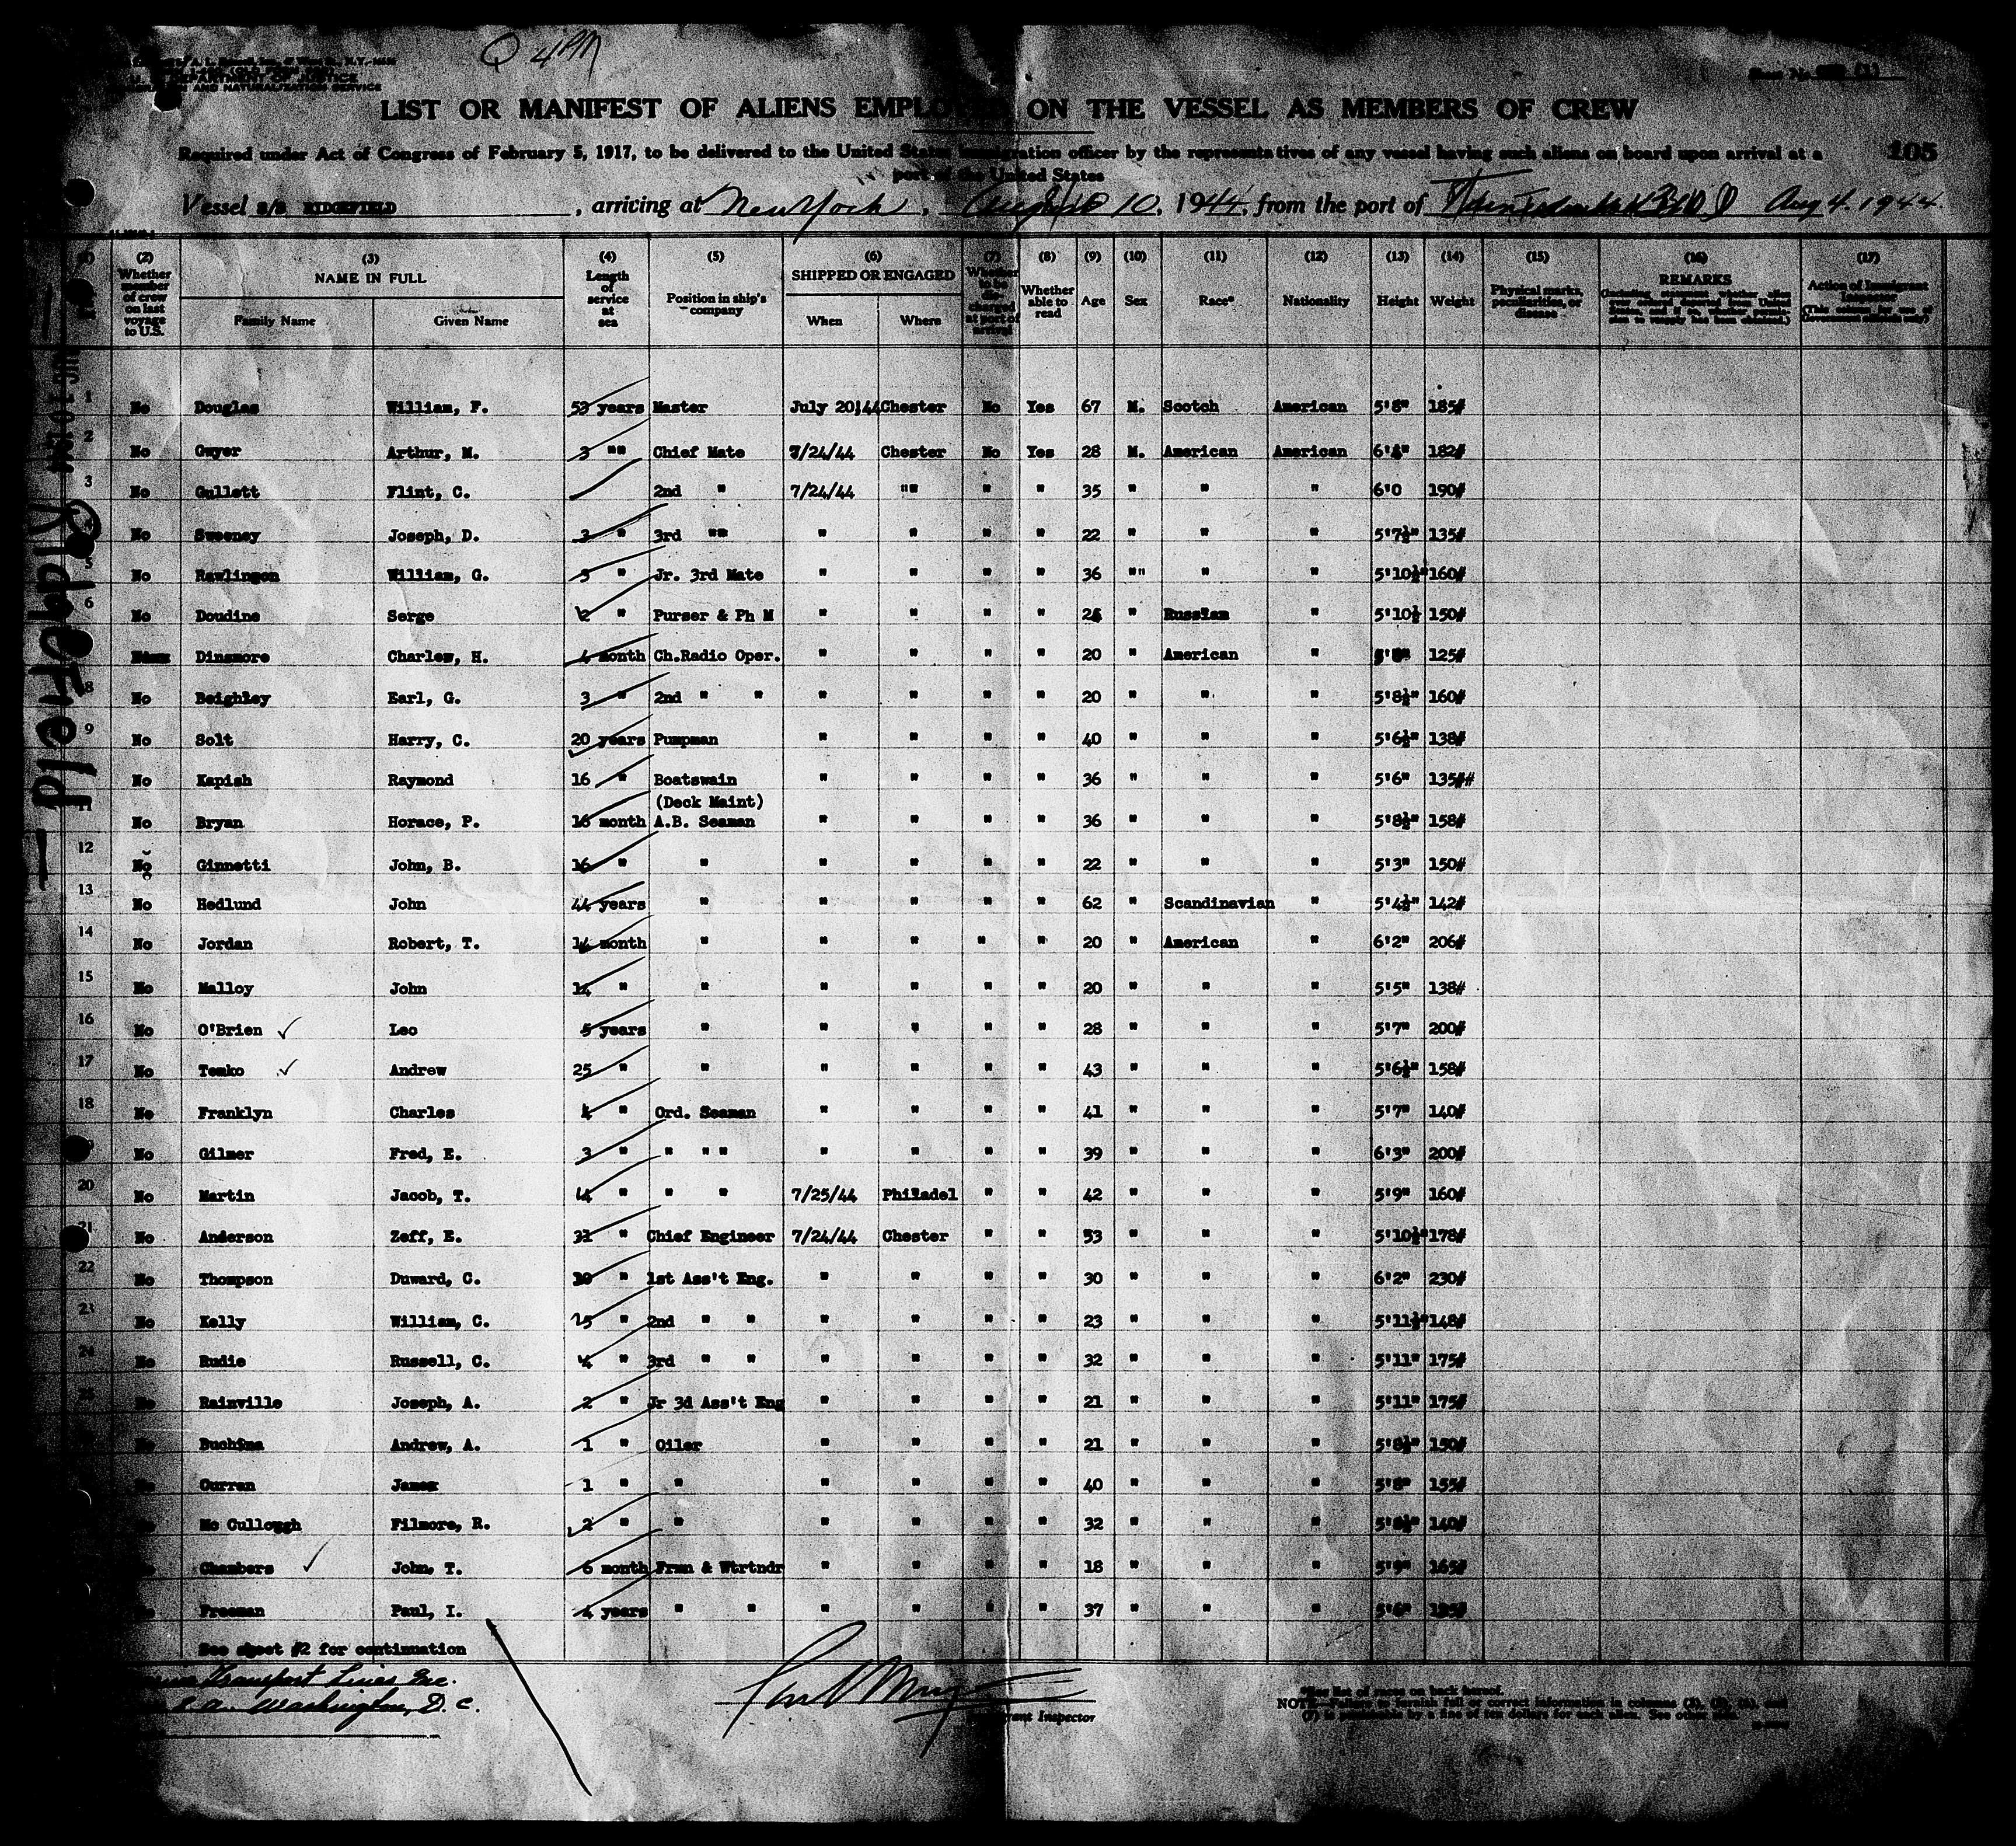 Q 4 PM
DEPARTMENT OF JUSTICE
AND NATURALIZATION SERVICE
Sheet No. (1)
LIST OR MANIFEST OF ALIENS EMPLOYED ON THE VESSEL AS MEMBERS OF CREW
Required under Act of Congress of February 5, 1917, to be delivered to the United States Immigration officer by the representatives of any vessel having such aliens on board upon arrival at a
port of the United States
105
Vessel S/S RIDGEFIELD, arriving at New York, August 10, 1944, from the port of Aug 4. 1944
(2) (3) (4) (5) (6) (7) (8) (9) (10) (11) (12) (13) (14) (15) (16) (17)
Whether member of crew on last voyage to U.S. NAME IN FULL Family Name Given Name Length of service at sea Position in ship's company SHIPPED OR ENGAGED When Where Whether to be discharged at port of arrival Whether able to read Age Sex Race* Nationality Height Weight Physical marks, peculiarities, or disease REMARKS Action of Immigrant Inspector
1 No Douglas William, F. 53 years Master July 20,44 Chester No Yes 67 M. Scotch American 5'8" 185#
2 No Gwyer Arthur, M. 3 "" Chief Mate 7/24/44 Chester No Yes 28 M. American American 182#
3 No Gullett Flint, C. 2nd " 7/24/44 "" " " 35 " " " 6'0 190#
No Sweeney Joseph, D. " 3rd "" " " " " 22 " " " 5'7½" 135#
5 No Rawlingson William, G. " Jr. 3rd Mate " " " " 36 "" " " 5'10½" 160#
6 No Doudine Serge 2 " Purser & Ph M " " " " " Russian " 5'10½ 150#
Dinsmore Charles, H. 4 month Ch.Radio Oper. " " " " 20 " American " 125#
8 No Beighley Earl, G. 3 " 2nd " " " " " " 20 " " " 5'8½" 160#
9 No Solt Harry, C. 20 years Pumpman " " " " 40 " " " 5'6½" 138#
No Kapish Raymond 16 " Boatswain " " " " 36 " " " 5'6" 135##
(Deck Maint)
11 No Bryan Horace, P. 16 month A.B. Seaman " " " " 36 " " " 5'8½" 158#
12 No Ginnetti John, B. 16 " " " " " " 22 " " " 5'3" 150#
13 No Hedlund John 44 years " " " " " 62 " Scandinavian " 5'4½" 142#
14 No Jordan Robert, T. 14 month " " " " " 20 " American " 6'2" 206#
15 No Malloy John 14 " " " " " " 20 " " " 5'5" 138#
16 No O'Brien Leo 5 years " " " " " 28 " " " 5'7" 200#
17 No Temko Andrew 25 " " " " " " 43 " " " 5'6½" 158#
18 No Franklyn Charles 4 " Ord. Seaman " " " " 41 " " " 5'7" 140#
No Gilmer Fred, E. 3 " " "" " " " " 39 " " " 6'3" 200#
20 No Martin Jacob, T. 14 " " " 7/25/44 Philadel " " 42 " " " 5'9" 160#
21 No Anderson Zeff, E. " Chief Engineer 7/24/44 Chester " " 53 " " " 5'10½" 178#
22 No Thompson Duward, C. " 1st Ass't Eng. " " " " 30 " " " 6'2" 230#
23 No Kelly William, C. " 2nd " " " " " " 23 " " " 5'11½" 148#
24 No Rudie Russell, C. " 3rd " " " " " " 32 " " " 5'11" 175#
Rainville Joseph, A. 2 " Jr 3d Ass't Eng " " " " 21 " " " 5'11" 175#
Buchina Andrew, A. 1 " Oiler " " " " 21 " " " 5'8½" 150#
Curran James 1 " " " " " " 40 " " " 5'8" 155#
Mc Cullough Filmore, R. 2 " " " " " " 32 " " " 5'8½" 140#
Chambers John, T. 6 month Frmn & Wtrtndr " " " " 18 " " " 5'9" 165#
Freeman Paul, I. 4 years " " " " " " 37 " " " 5'6"
See sheet #2 for continuation
Transport Lines Inc.
Washington, D. C.
Immigrant Inspector
*See list of races on back hereof.
NOTE—Failure to furnish full or correct information in columns
(7) is punishable by a fine of ten dollars for each alien. See other side.
Ridgefield